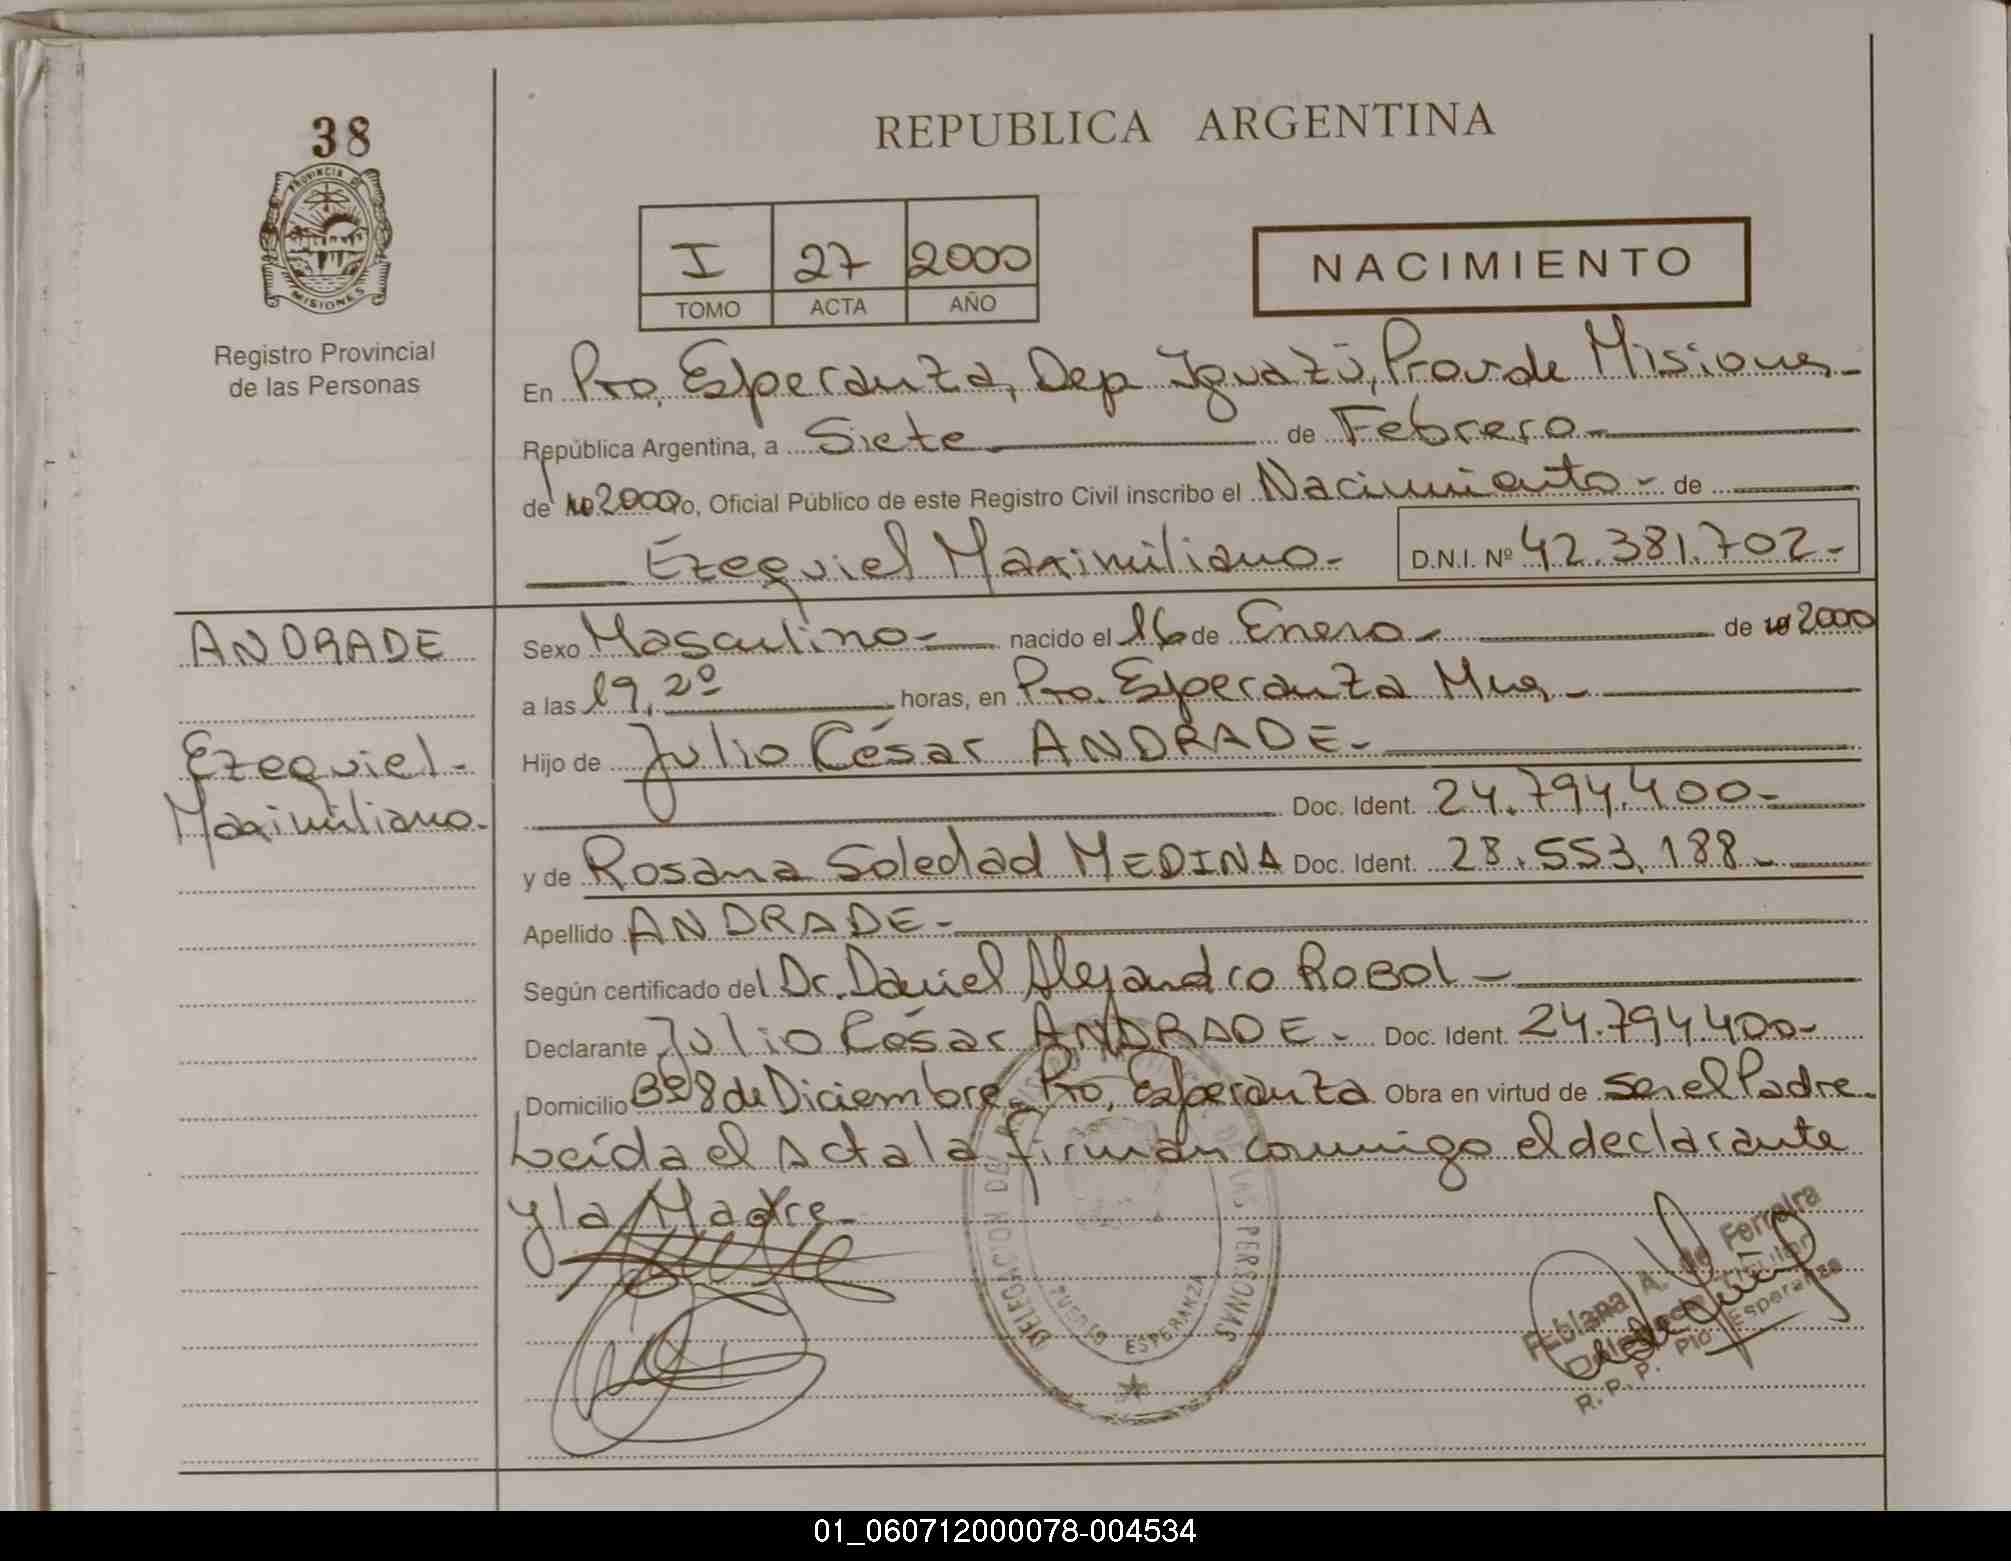 38
PROVINCIA DE
MISIONES
Registro Provincial
de las Personas
REPUBLICA ARGENTINA
I 27 2000
TOMO ACTA AÑO
NACIMIENTO
En Pto. Esperanza, Dep Iguazú, Prov de Misiones-
República Argentina, a Siete de Febrero-
de 2000, Oficial Público de este Registro Civil inscribo el Nacimiento - de
Ezequiel Maximiliano- D.N.I. Nº 42.381.702-
ANDRADE
Ezequiel-
Maximiliano-
Sexo Masculino- nacido el 16 de Enero- de 2000
a las 19,20 horas, en Pto. Esperanza Mnes-
Hijo de Julio César ANDRADE-
Doc. Ident. 24.794.400-
y de Rosana Soledad MEDINA Doc. Ident. 28.553.188-
Apellido ANDRADE-
Según certificado del Dr. Daniel Alejandro ROBOL-
Declarante Julio César ANDRADE- Doc. Ident. 24.794.400-
Domicilio Bº 8 de Diciembre- Pto. Esperanza Obra en virtud de ser el Padre-
Leída el Acta la firman conmigo el declarante
y la Madre-
DELEGACION DE LAS PERSONAS
PUERTO ESPERANZA
Fabiana A. de Ferreira
R. P. P. Pto. Esperanza
01_060712000078-004534